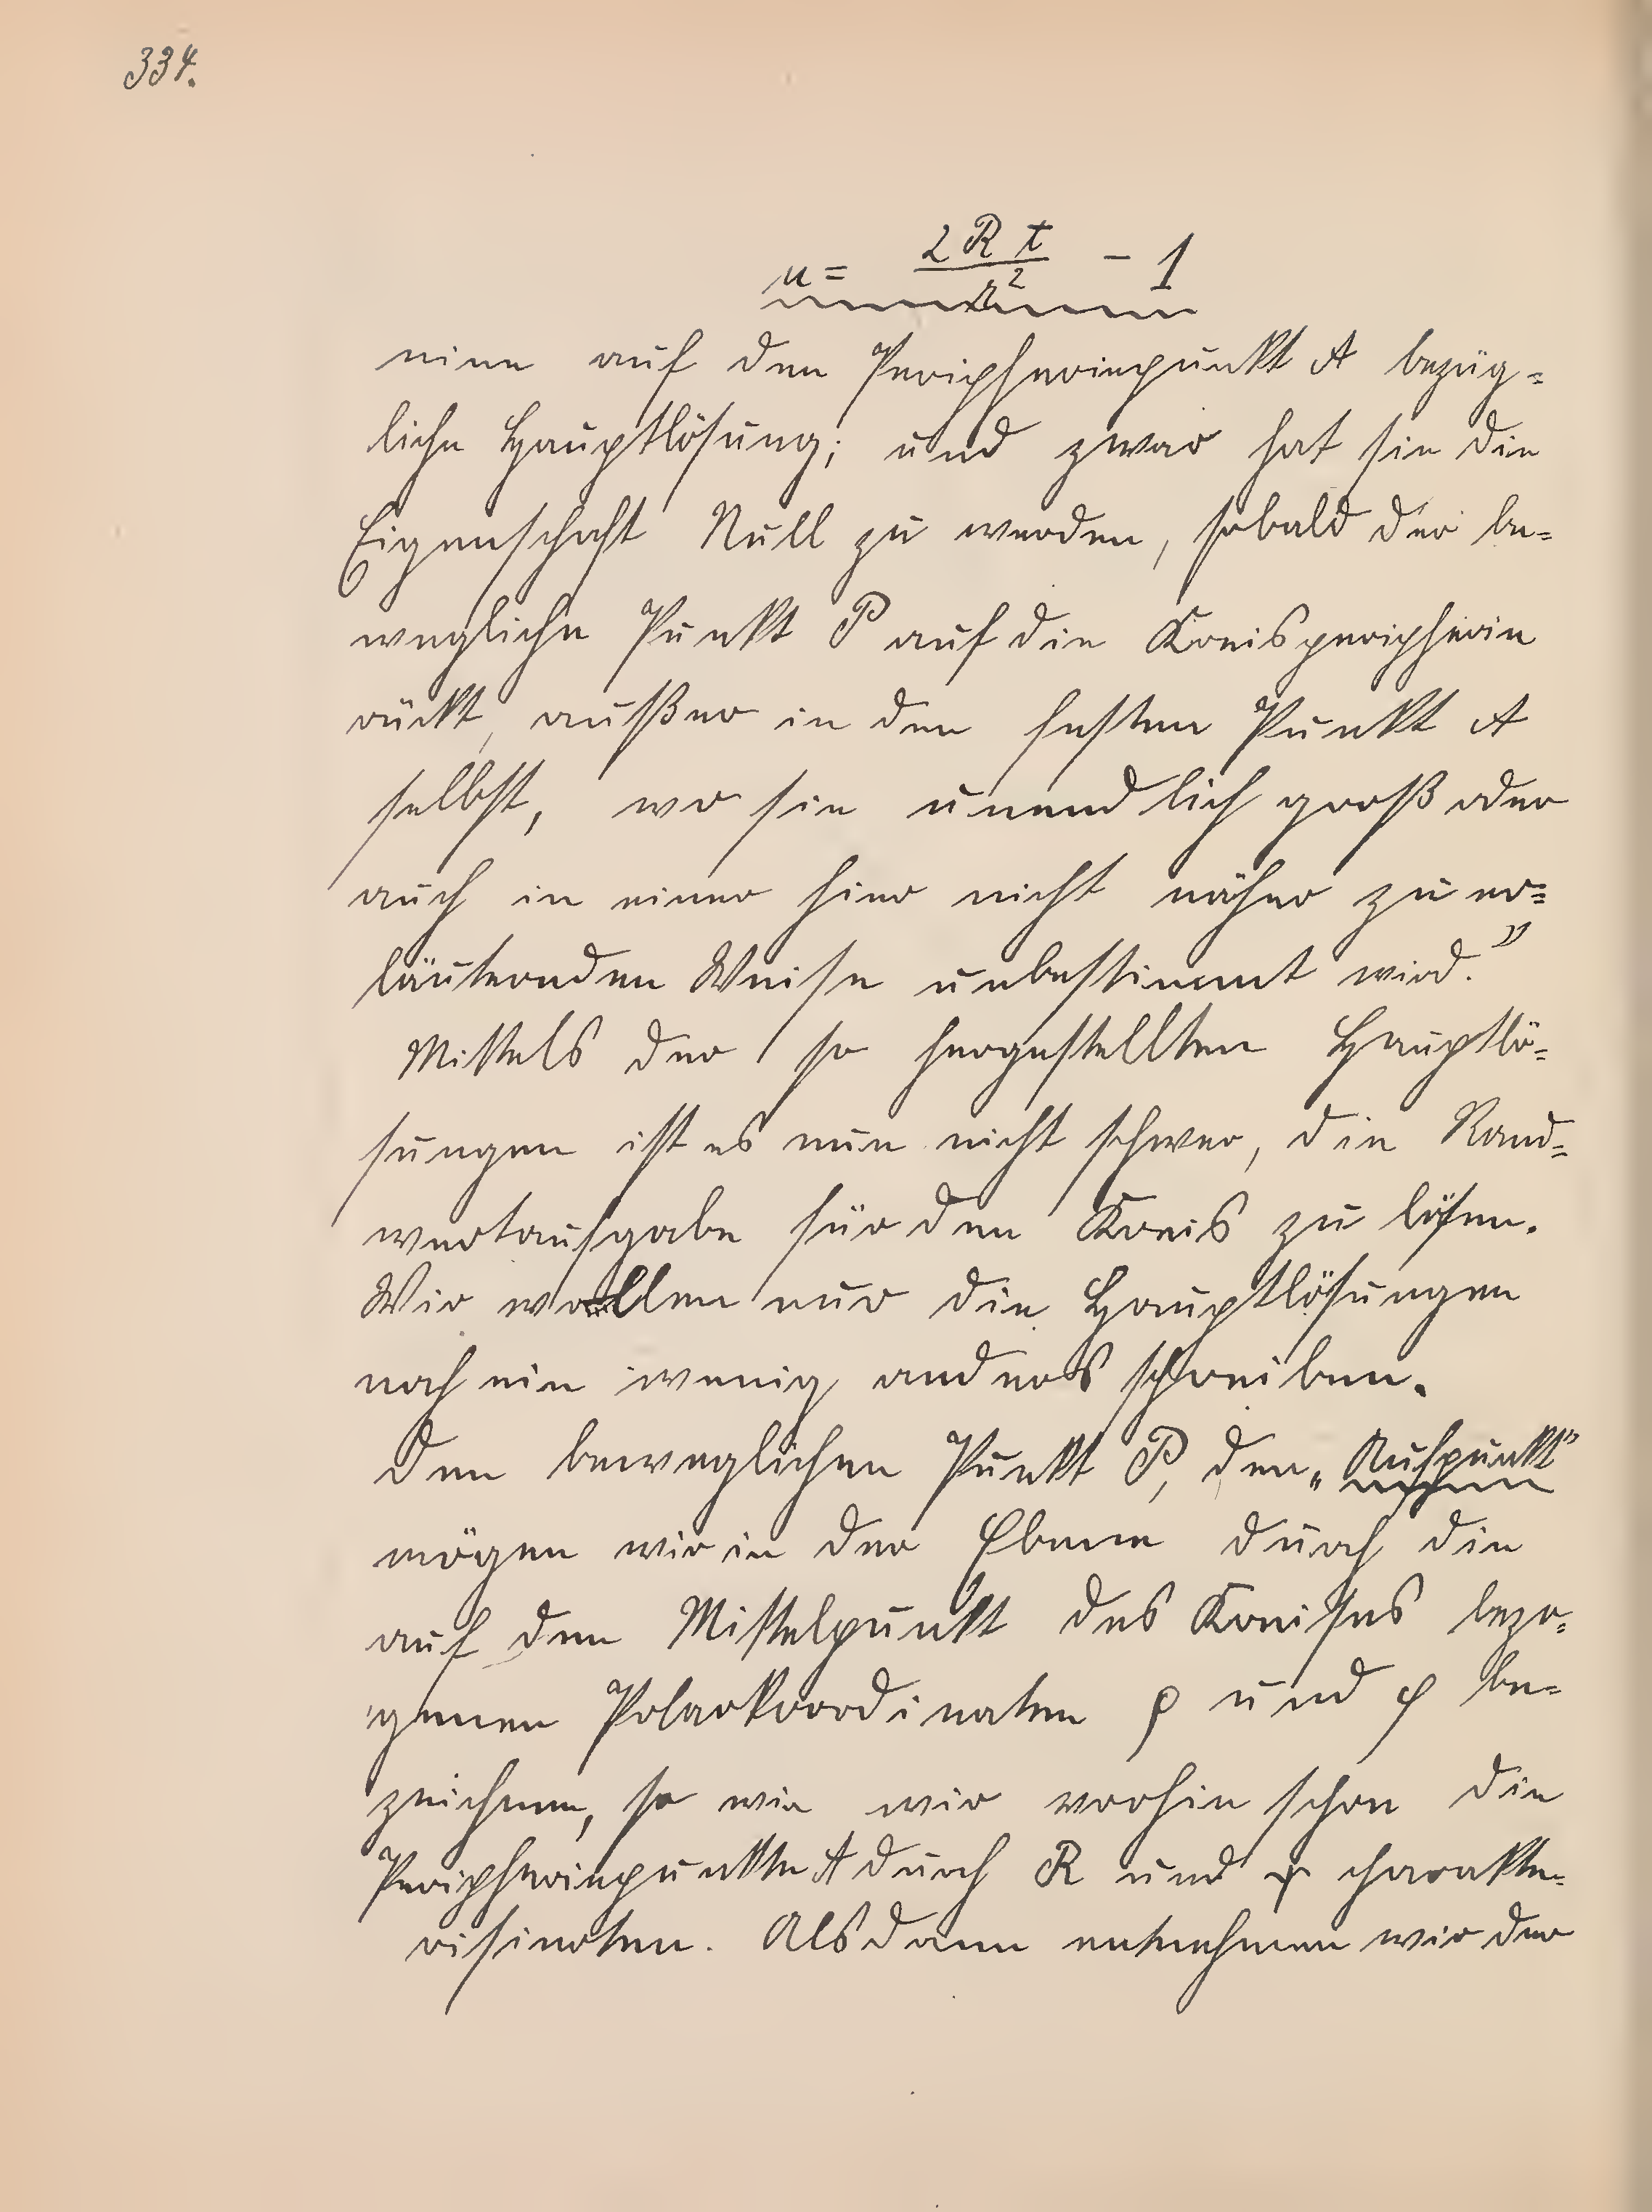 334.
u = 2 R t / r² - 1
eine auf den Peripheriepunkt A bezüg=
liche Hauptlösung; und zwar hat sie die
Eigenschaft Null zu werden, sobald der be=
wegliche Punkt P auf die Kreisperipherie
rückt, außer in den festen Punkt A
selbst, wo sie unendlich groß oder
auch in einer hier nicht näher zu er=
läuternden Weise unbestimmt wird."
Mittels der so hergestellten Hauptlö=
sungen ist es nun nicht schwer, die Rand=
wertaufgabe für den Kreis zu lösen.
Wir wollen nur die Hauptlösungen
noch ein wenig anders schreiben.
Den beweglichen Punkt P, den „Aufpunkt"
mögen wir in der Ebene durch die
auf den Mittelpunkt des Kreises bezo=
genen Polarkoordinaten ρ und φ be=
zeichnen, so wie wir vorhin schon die
Peripheriepunkte A durch R und ψ charakte=
risierten. Alsdann entnehmen wir der